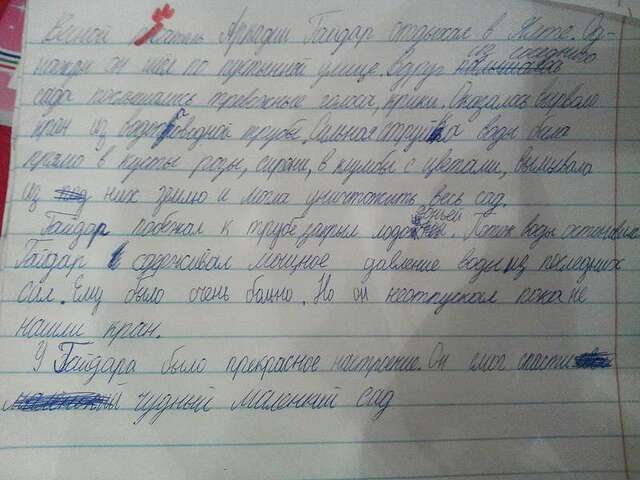 Весной писатель Аркадий Гайдар отдыхал в Ялте. Од-
нажды он шёл по пустынной улице. Вдруг из соседнего
сада послышались тревожные голоса, крики. Оказалось вырвало
кран из водопроводной трубы. Сильная струя воды била
прямо в кусты розы, сирени, в клумбы с цветами, вымывала
из них землю и могла уничтожить весь сад.
Гайдар побежал к трубе зажал ладонью. Поток воды остановился
Гайдар сдерживал мощное давление воды из последних
сил. Ему было очень больно. Но он неотпускал пока не
нашли кран.
У Гайдара было прекрасное настроение. Он смог спасти
чудный маленкий сад